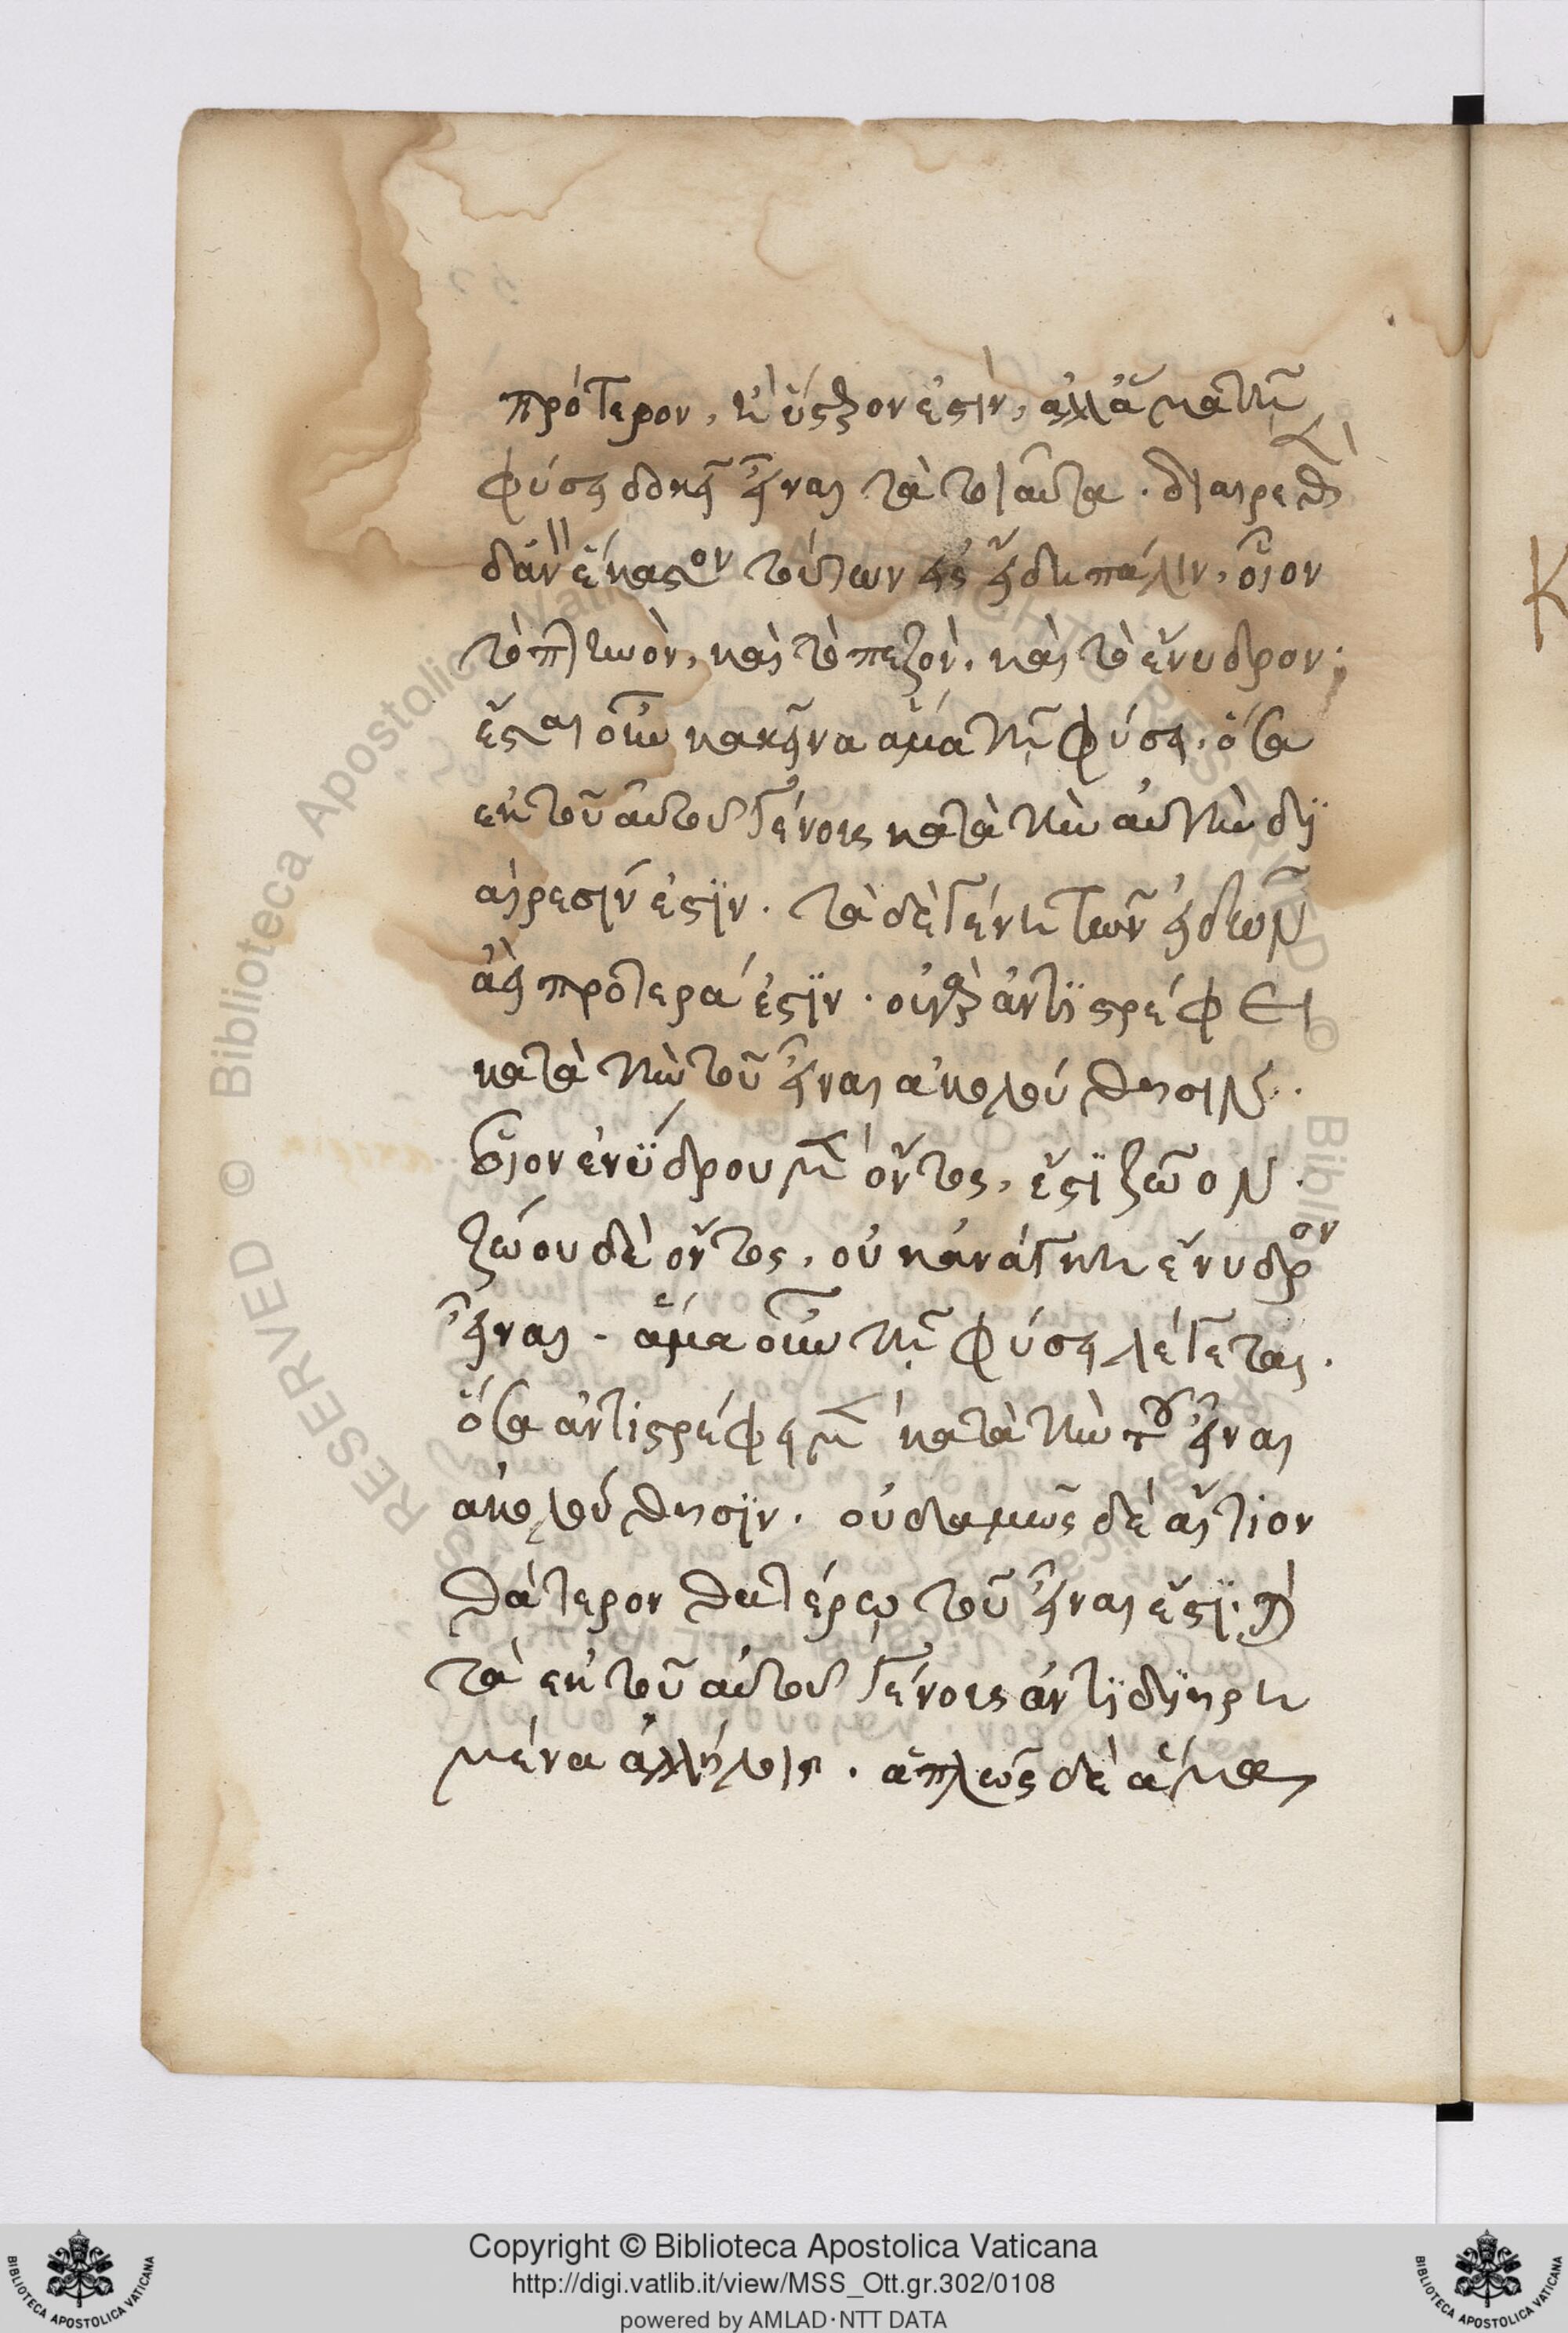 πρότερον, ἢ ὕστερον ἐστὶν, ἀλλ' ἅμα τῆ
φύσει δοκεῖ εἶναι τὰ τοιαῦτα. διαιρεθεί
δ' ἂν ἕκαστον τούτων εἰς εἴδη πάλιν, οἷον
τὸ πτηνὸν, καὶ τὸ πεζὸν, καὶ τὸ ἔνυδρον·
ἔσται οὖν κακεῖνα ἅμα τῆ φύσει, ὅσα
ἐκ τοῦ αὐτοῦ γένους κατὰ τὴν αὐτὴν δϊ
αίρεσίν ἐστϊν. τὰ δὲ γένη τῶν εἰδῶν
ἀεὶ πρότερά ἐστϊν. οὐ γὰρ ἀντϊστρέφει
κατὰ τὴν τοῦ εἶναι ἀκολούθησιν.
οἷον ἐνΰδρου μὲν ὄντος, ἔστϊ ζῶον.
ζώου δὲ ὄντος, οὐκ ἀνάγκη ἔνυδρον
εἶναι. ἅμα οὖν τῆ φύσει λέγεται.
ὅσα ἀντιστρέφει μὲν κατὰ τὴν τοῦ εἶναι
ἀκολούθησϊν. οὐδαμῶς δὲ αἴτιον
θάτερον θατέρω τοῦ εἶναι ἔστϊ. καὶ
τὰ ἐκ τοῦ αὐτοῦ γένους ἀντϊδϊηρη
μένα ἀλλήλοις. ἁπλῶς δὲ ἅμα
Κ
Copyright © Biblioteca Apostolica Vaticana
http://digi.vatlib.it/view/MSS_Ott.gr.302/0108
powered by AMLAD·NTT DATA